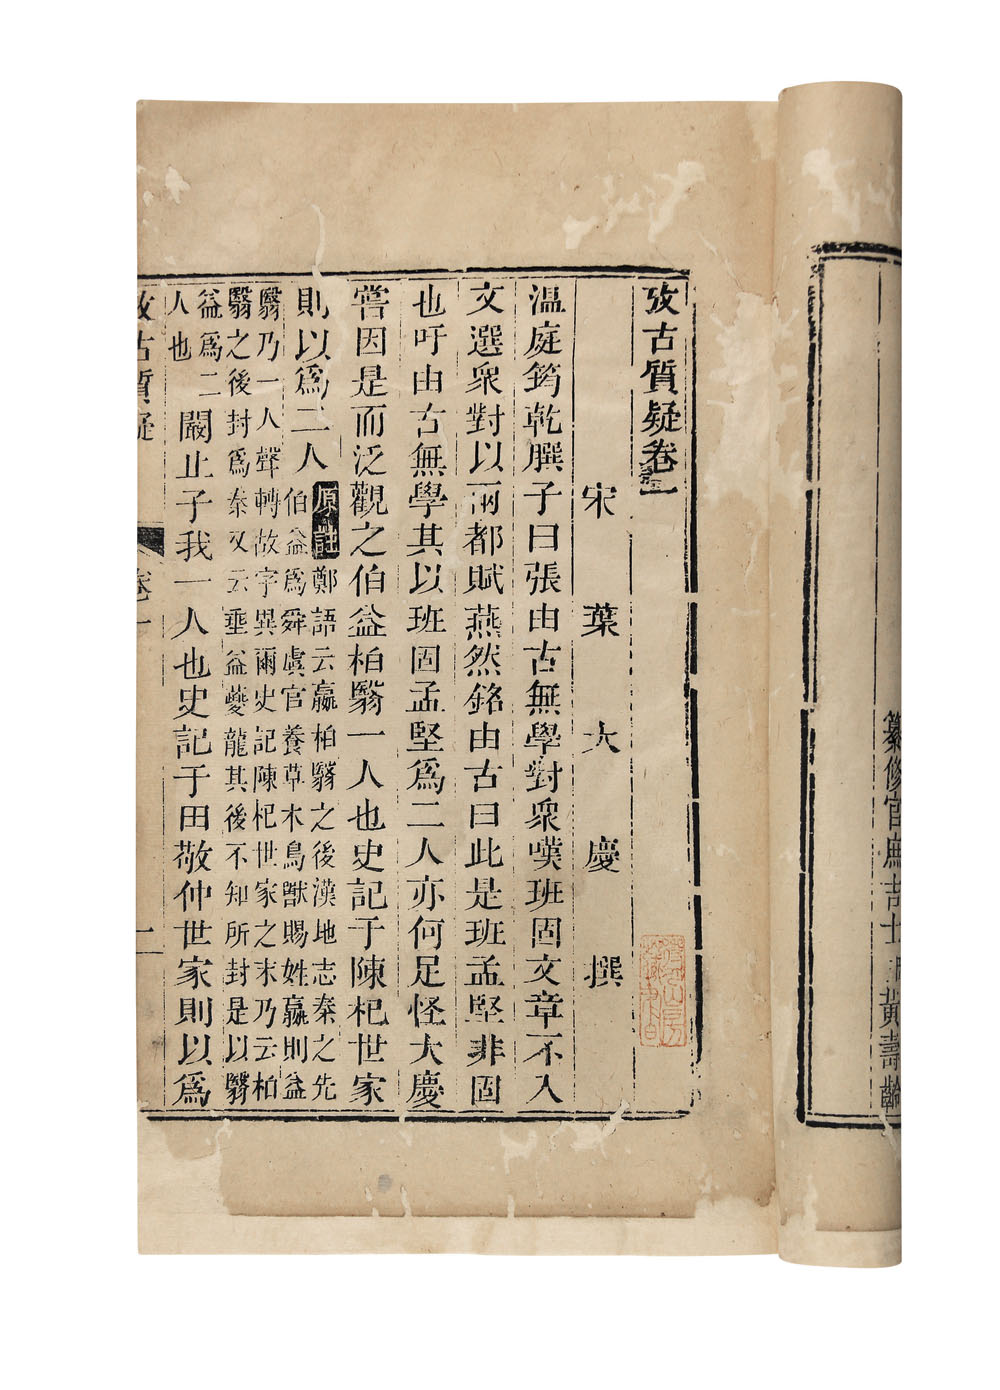 纂修官庶吉士臣黃壽齡
攷古質疑卷一
宋葉大慶撰
溫庭筠乾𦠆子曰張由古無學對衆嘆班固文章不入
文選衆對以兩都賦燕然銘由古曰此是班孟堅非固
也吁由古無學其以班固孟堅爲二人亦何足怪大慶
嘗因是而泛觀之伯益柏翳一人也史記于陳杞世家
則以爲二人原註鄭語云嬴柏翳之後漢地志秦之先
伯益爲舜虞官養草木鳥獸賜姓嬴則益
翳乃一人聲轉故字異爾史記陳杞世家之末乃云柏
翳之後封爲秦又云垂益夔龍其後不知所封是以翳
益爲二
人也
闞止子我一人也史記于田敬仲世家則以爲
攷古質疑
卷一